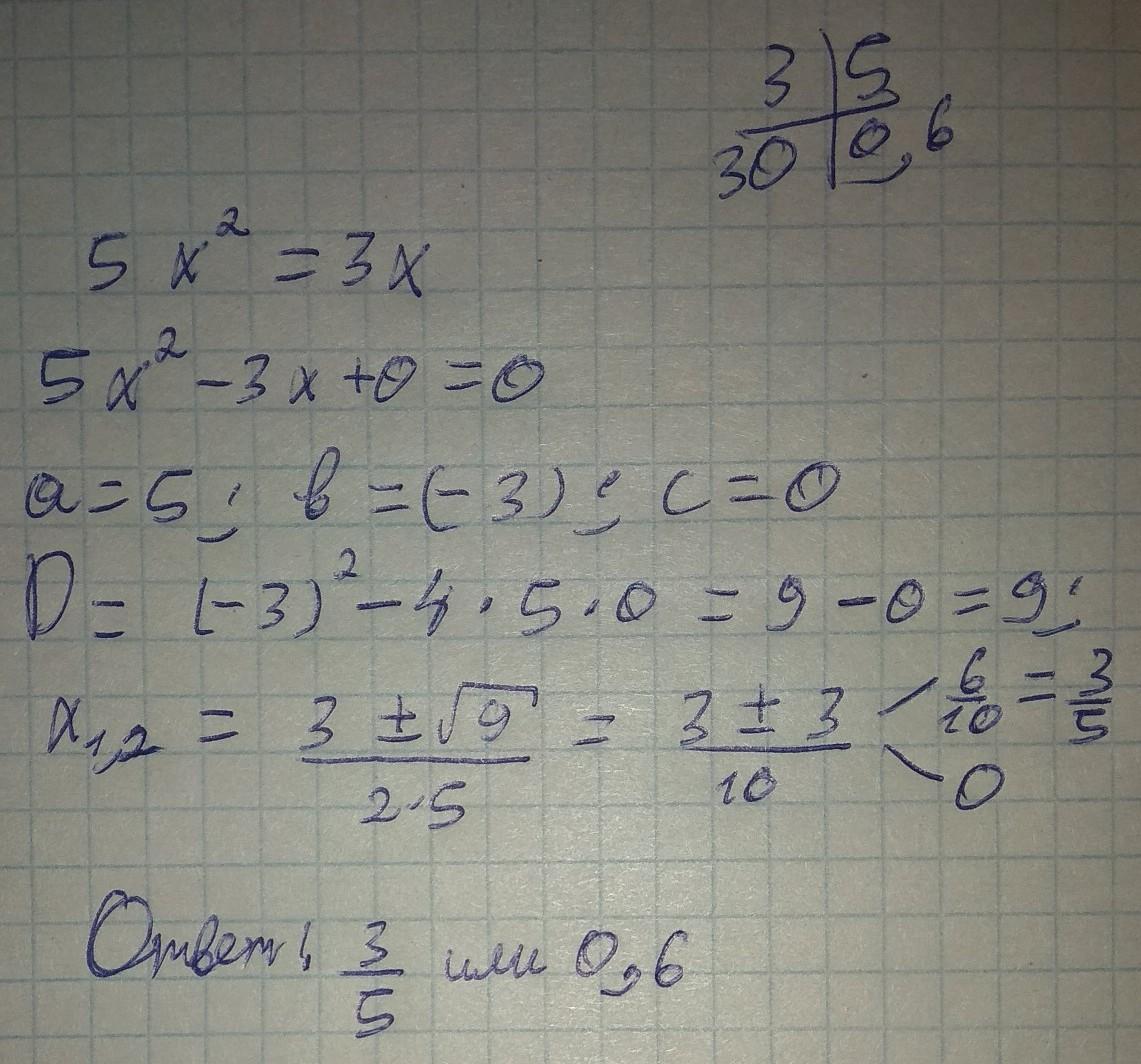 3 | 5
30 | 0,6
5x² = 3x
5x² - 3x + 0 = 0
a = 5; b = (-3); c = 0
D = (-3)² - 4 · 5 · 0 = 9 - 0 = 9;
x₁,₂ = (3 ± √9)/(2·5) = (3 ± 3)/10 < 6/10 = 3/5
0
Ответ: 3/5 или 0,6